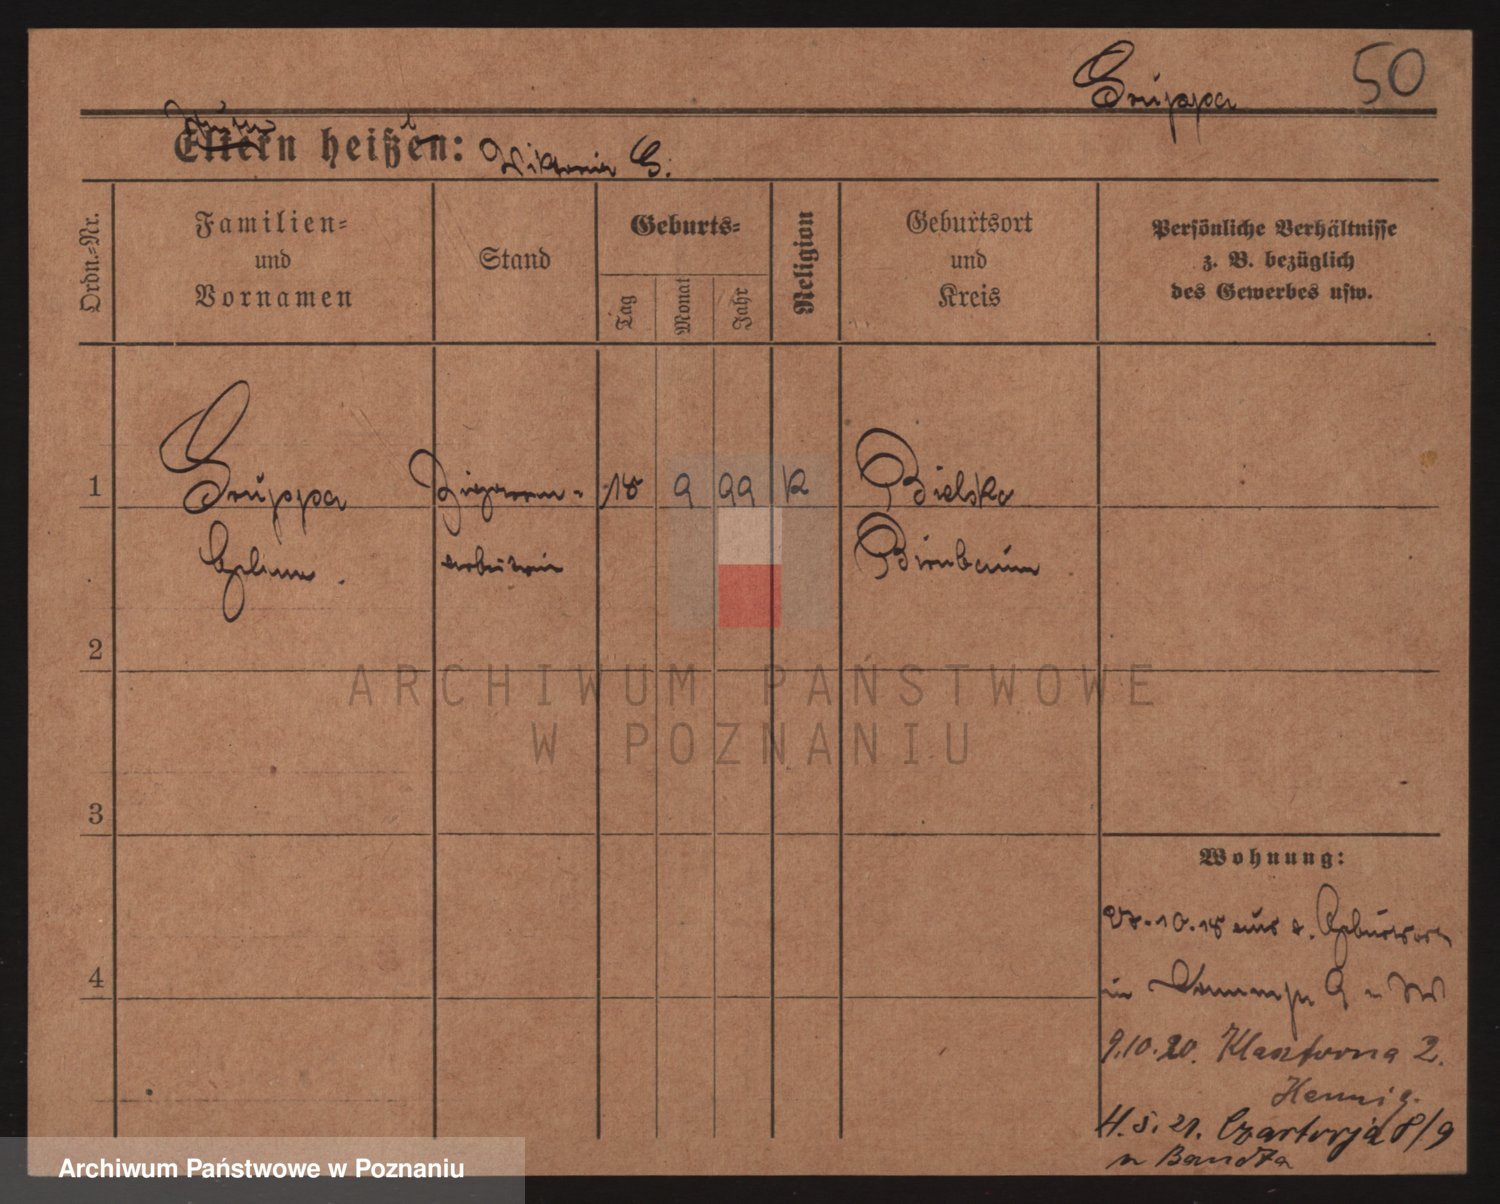 50
Gruppa
Eltern heißen: Wiktoria G.
Ordn.-Nr.
Familien-
und
Vornamen
Stand
Geburts-
Tag
Monat
Jahr
Religion
Geburtsort
und
Kreis
Persönliche Verhältnisse
z. B. bezüglich
des Gewerbes usw.
1
Gruppa
Zigarren-
18 9 99 K
Bielsko
arbeiterin
Birnbaum
2
ARCHIWUM PAŃSTWOWE
W POZNANIU
3
4
Wohnung:
27.10.18 aus d. Geburtsort
in
9.10.20. Klasztorna 2.
Hennig.
4.5.21. Czartorja 8/9
Archiwum Państwowe w Poznaniu